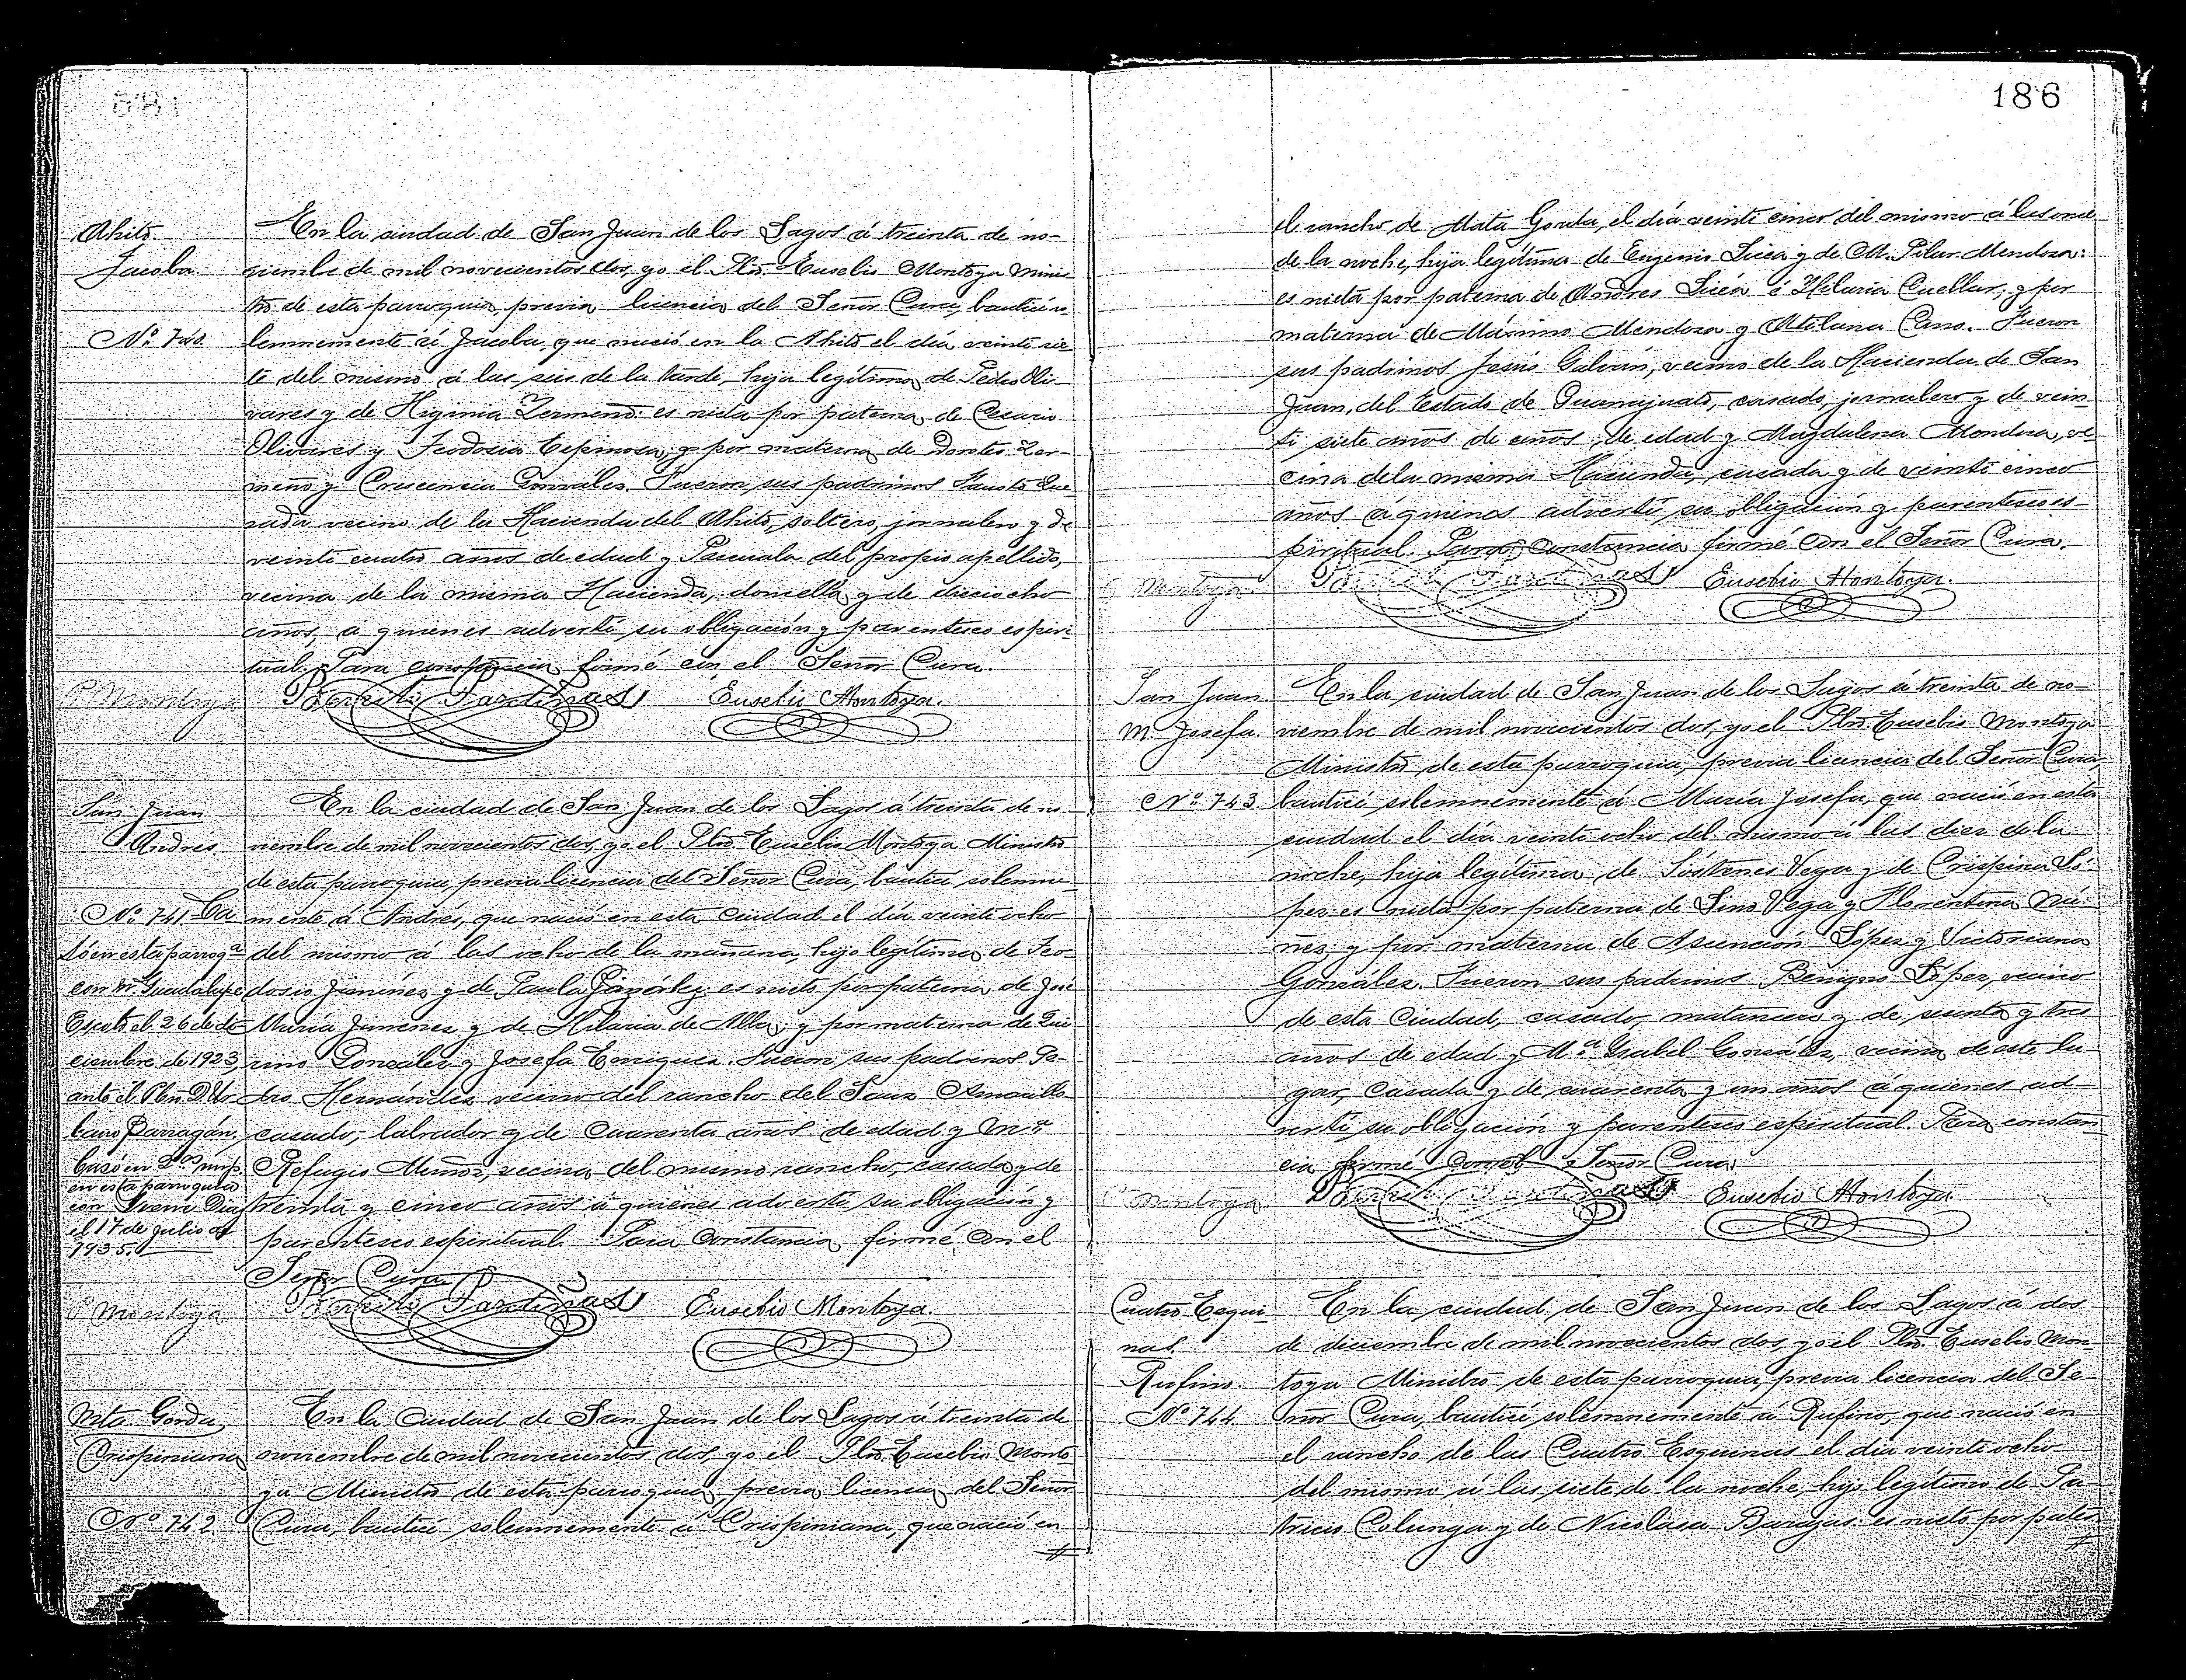 186
Ahito.
Jacoba.
No. 740.
En la ciudad de San Juan de los Lagos á treinta de no-
viembre de mil novecientos dos, yo el Pbro. Eusebio Montoya Minis
tro de esta parroquia, previa licencia del Señor Cura, bauticé so
lemnemente á Jacoba, que nació en la Ahito el día veinte sie
te del mismo á las seis de la tarde, hija legítima de Pedro Oli-
vares y de Higinia Zermeño: es nieta por paterna de Cesario
Olivares y Teodosia Espinosa, y por materna de Zer-
meño y Crescencia González. Fueron sus padrinos Fausto Que
zada vecino de la Hacienda del Ahito, soltero, jornalero y de
veinte cuatro años de edad y Pascuala del propio apellido,
vecina de la misma Hacienda, doncella y de dieciocho
años, á quienes advertí su obligación y parentesco espiri-
tual. Para constancia firmé con el Señor Cura.
P. Montoya Eusebio Montoya.
San Juan
Andrés
No. 741. Ca
só en esta parroqa.
con Ma. Guadalupe
el 26 de di-
ciembre de 1923,
ante el Pbro. D. Ur-
bano Barragán.
Casó en 2as nup.
en esta parroquia
con Díaz
el 17 de julio de
1935.
En la ciudad de San Juan de los Lagos á treinta de no-
viembre de mil novecientos dos, yo el Pbro. Eusebio Montoya Ministro
de esta parroquia, previa licencia del Señor Cura, bauticé solemne-
mente á Andrés, que nació en esta Ciudad el día veinte ocho
del mismo á las ocho de la mañana, hijo legítimo de Teo-
dosio Jiménez y de Paula es nieto por paterna de José
María Jimenez y de Hilaria de Alba; y por materna de Qui
rino González y Josefa Enriquez. Fueron sus padrinos Pe-
dro Hernández vecino del rancho del Sauz Amarillo
casado, labrador y de cuarenta años de edad y Ma.
Refugio Muñoz, vecina del mismo rancho, casada y de
treinta y cinco años á quienes advertí su obligación y
parentesco espiritual. Para constancia firmé con el
Señor Cura.
P. Montoya Eusebio Montoya.
Mta. Gorda
Crispiniana
No. 742
En la Ciudad de San Juan de los Lagos á treinta de
noviembre de mil novecientos dos, yo el Pbro. Eusebio Monto
ya Ministro de esta parroquia, previa licencia del Señor
Cura, bauticé solemnemente á Crispiniana, que nació en
el rancho de Mata Gorda, el día veinte cinco del mismo á las once
de la noche, hija legítima de Eugenio Licéa y de M. Pilar Mendoza:
es nieta por paterna de Andres Licéa é Hilaria Cuellar; y por
materna de Máximo Mendoza y Atilana Cano. Fueron
sus padrinos Jesús Galván, vecino de la Hacienda de San
Juan, del Estado de Guanajuato, casado, jornalero y de vein-
ti siete años de años, de edad y Magdalena Mendoza, ve-
cina de la misma Hacienda, casada y de veinti cinco
años á quienes advertí su obligación y parentesco es-
piritual. Para constancia firmé con el Señor Cura.
P. Montoya Eusebio Montoya.
San Juan
M. Josefa
No. 743.
En la ciudad de San Juan de los Lagos á treinta de no-
viembre de mil novecientos dos, yo el Pbro. Eusebio Montoya
Ministro de esta parroquia, previa licencia del Señor Cura
bauticé solemnemente á María Josefa, que nació en esta
ciudad el día veinte ocho del mismo á las diez de la
noche, hija legítima de Sóstenes Vega y de Crispina Ló-
pez: es nieta por paterna de Lino Vega y Florentina Nú-
ñez; y por materna de Asención López y Victoriana
González. Fueron sus padrinos Benigno López, vecino
de esta Ciudad, casado, matancero y de sesenta y tres
años de edad y Ma. Ysabel González, vecina de este lu-
gar, casada y de cuarenta y un años á quienes ad-
vertí su obligación y parentesco espiritual. Para constan
cia firmé con el Señor Cura.
P. Montoya Eusebio Montoya
Cuatro Esqui-
nas.
Rufino.
No. 744.
En la ciudad de San Juan de los Lagos á dos
de diciembre de mil novecientos dos, yo el Pbro. Eusebio Mon-
toya Ministro de esta parroquia, previa licencia del Se-
ñor Cura, bauticé solemnemente á Rufino, que nació en
el rancho de las Cuatro Esquinas el día veinte ocho
del mismo á las siete de la noche, hijo legítimo de Pa-
tricio Colunga y de Nicolasa Barajas: es nieto por pater-